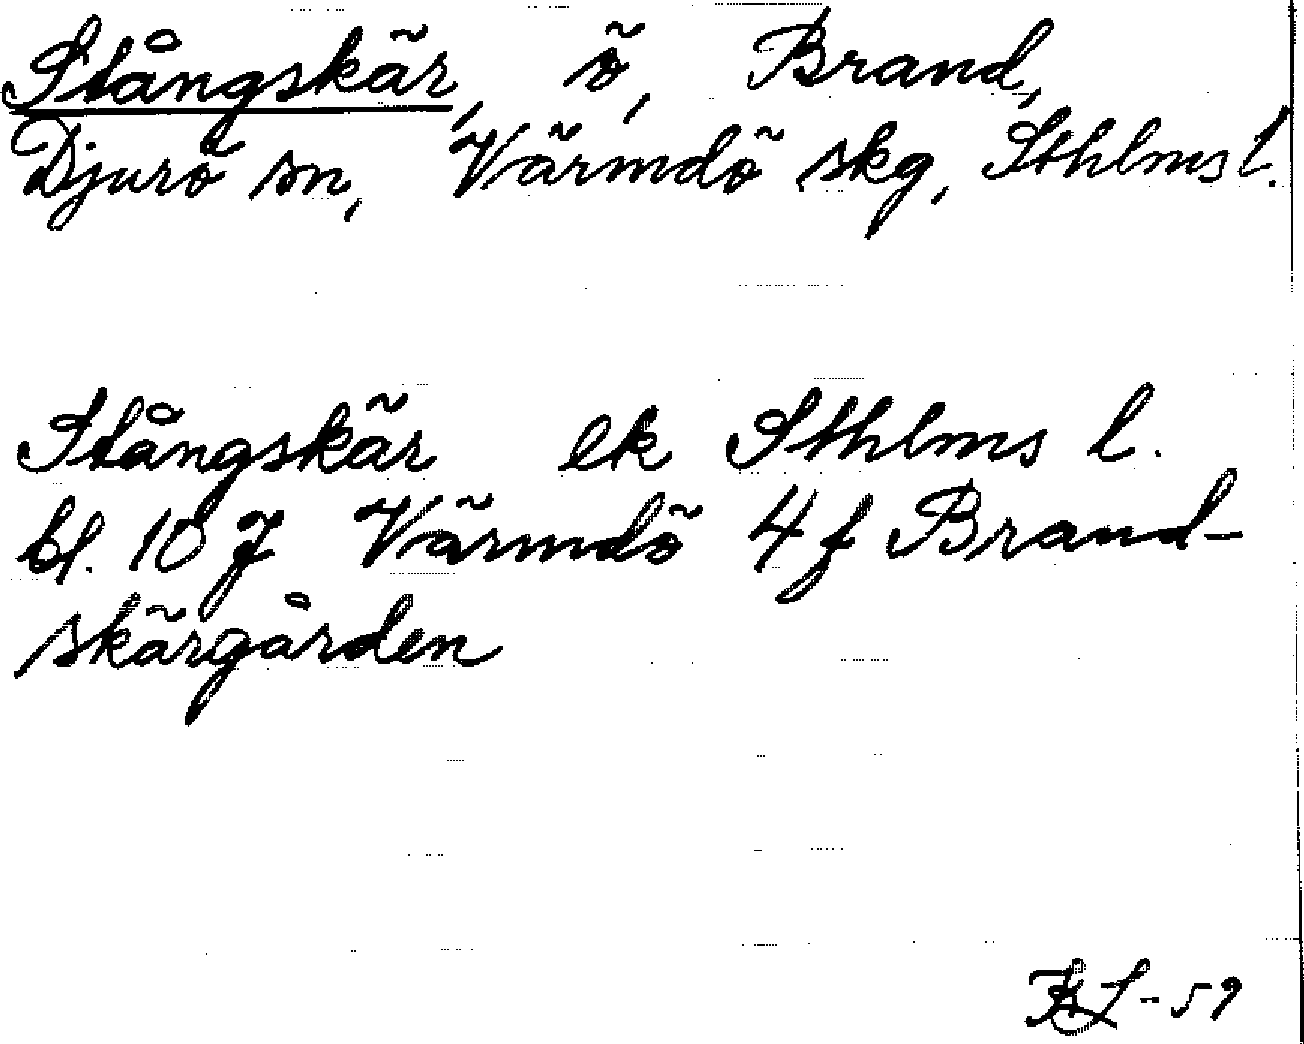 Stångskär, ö, Brand,
Djurö sn, Värmdö skg, Sthlms l.
Stångskär ek Sthlms l.
bl. 107 Värmdö 4 f Brand-
skärgården
-59